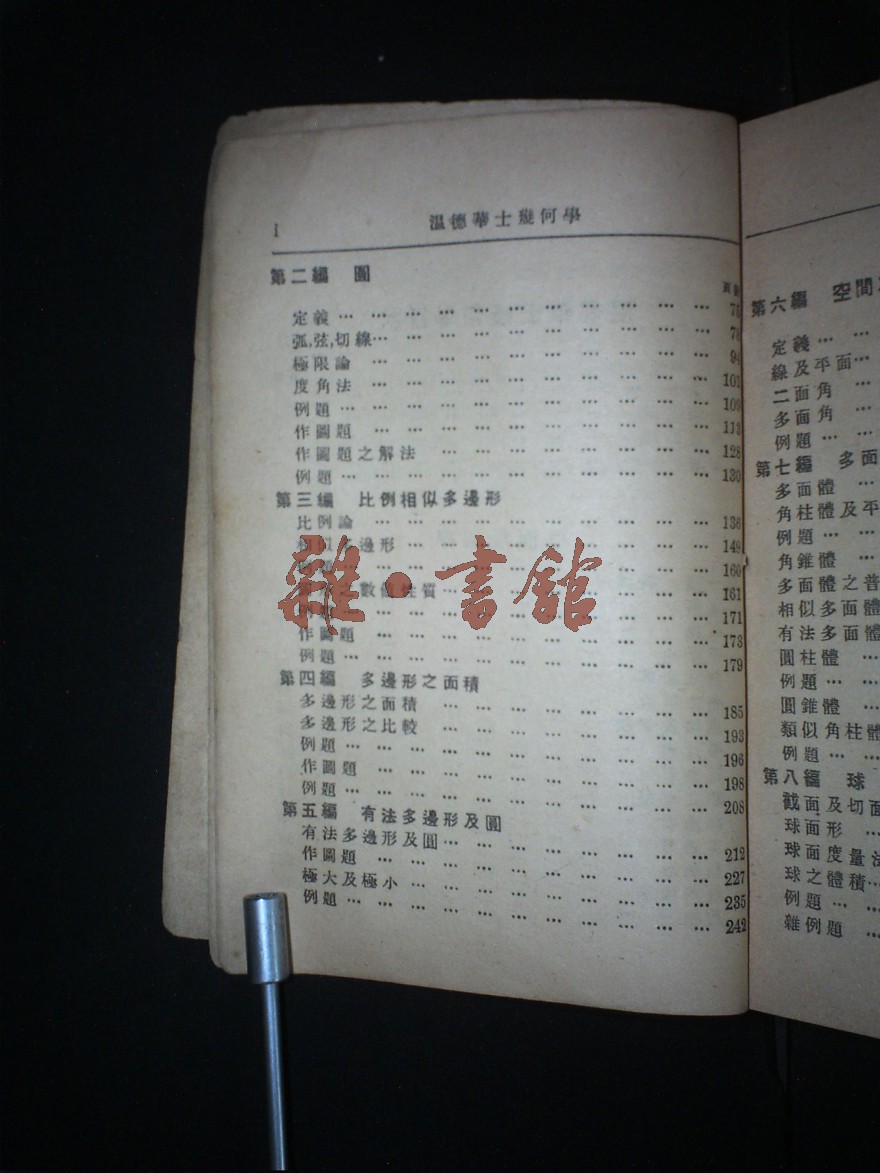 1
溫德華士幾何學
第二編 圓
面數
定義 … … … … … … … … … … … 75
弧,弦,切線… … … … … … … … … … 78
極限論 … … … … … … … … … … 94
度角法 … … … … … … … … … … 101
例題 … … … … … … … … … … … 109
作圖題 … … … … … … … … … … 113
作圖題之解法 … … … … … … … … 128
例題 … … … … … … … … … … … 130
第三編 比例相似多邊形
比例論 … … … … … … … … … … 136
相似多邊形 … … … … … … … … … 149
… … … … … … … … … … 160
數值性質 … … … … … … … … 161
… … … … … … … … … … 171
作圖題 … … … … … … … … … … 173
例題 … … … … … … … … … … … 179
第四編 多邊形之面積
多邊形之面積 … … … … … … … … 185
多邊形之比較 … … … … … … … … 193
例題 … … … … … … … … … … … 196
作圖題 … … … … … … … … … … 198
例題 … … … … … … … … … … … 208
第五編 有法多邊形及圓
有法多邊形及圓… … … … … … … … 212
作圖題 … … … … … … … … … … 227
極大及極小 … … … … … … … … … 235
例題 … … … … … … … … … … … 242
第六編 空間
定義 … …
線及平面 …
二面角 …
多面角 …
例題 … …
第七編 多面
多面體 …
角柱體及平
例題 … …
角錐體 …
多面體之普
相似多面體
有法多面體
圓柱體 …
例題 … …
圓錐體 …
類似角柱體
例題 … …
第八編 球
截面及切面
球面形 …
球面度量法
球之體積…
例題 … …
雜例題 …
雜·書館